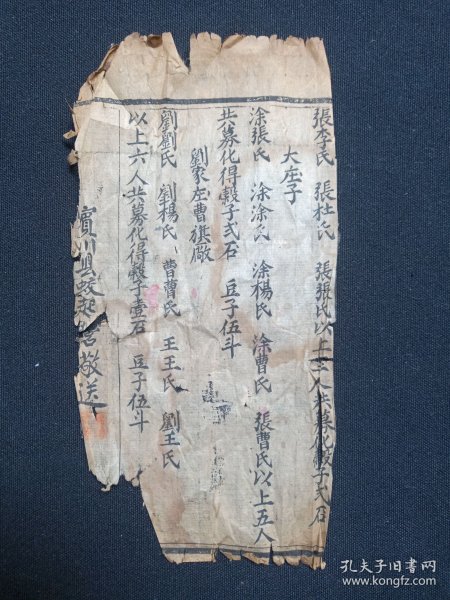 張李氏 張杜氏 張張氏以上三人共募化穀子弍石
大庄子
涂張氏 涂涂氏 涂楊氏 涂曹氏 張曹氏以上五人
共募化得穀子弍石 豆子伍斗
劉家庄曹旗廠
劉劉氏 劉楊氏 曹曹氏 王王氏 劉王氏
以上六人共募化得穀子壹石 豆子伍斗
賓川縣 敬送
孔夫子旧书网
www.kongfz.com